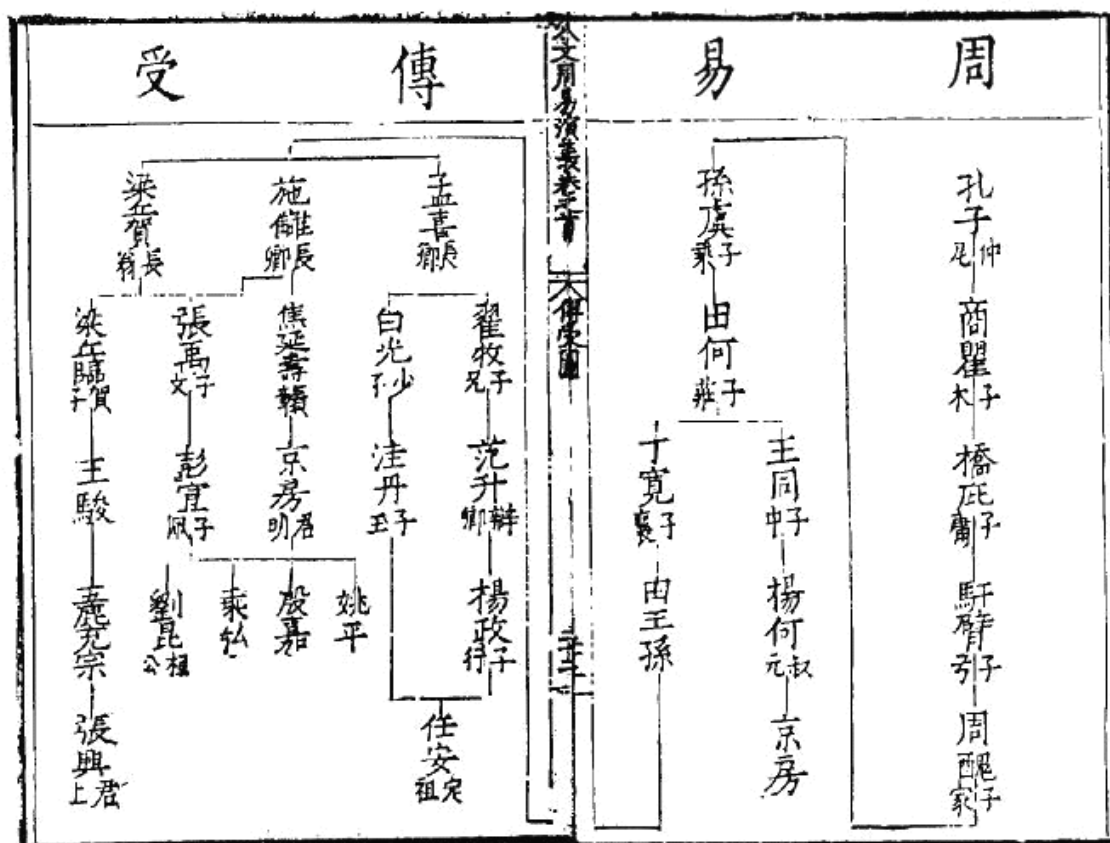 周易
傳受
孔子仲尼
商瞿子木
橋庇子庸
馯臂子弓
周醜子家
孫虞子乘
田何子莊
王同子中
楊何叔元
京房
丁寬子襄
田王孫
今文周易演義卷之首
傳受圖
孟喜長卿
翟牧子兄
范升辯卿
楊政子行
白光少子
洼丹子玉
任安定祖
施讎長卿
焦延壽贛
京房君明
姚平
殷嘉
乘弘
張禹子文
彭宣子佩
劉昆桓公
梁丘賀長翁
梁丘臨賀子
王駿
五鹿充宗
張興君上